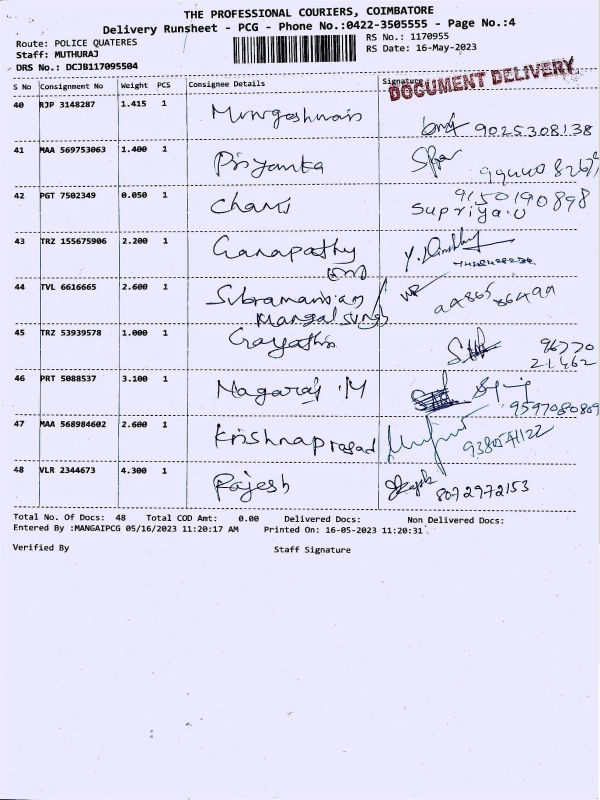 THE PROFESSIONAL COURIERS, COIMBATORE
Delivery Runsheet - PCG - Phone No.:0422-3505555 - Page No.:4
Route: POLICE QUATERES RS No.: 1170955
Staff: MUTHURAJ RS Date: 16-May-2023
DRS No.: DCJB117095504
DOCUMENT DELIVERY
S No Consignment No Weight PCS Consignee Details Signature
40 RJP 3148287 1.415 1
9025308138
41 MAA 569753063 1.400 1 Priyanka
42 PGT 7502349 0.050 1 9150190898
Supriya.U
43 TRZ 155675906 2.200 1 Ganapathy
44 TVL 6616665 2.600 1 Subramanian
45 TRZ 53939578 1.000 1 Gayathri 96770
21462
46 PRT 5088537 3.100 1 Nagaraj .M 9597080809
47 MAA 568984602 2.600 1 Krishnaprasad
48 VLR 2344673 4.300 1 Rajesh 8072972153
Total No. Of Docs: 48 Total COD Amt: 0.00 Delivered Docs: Non Delivered Docs:
Entered By :MANGAIPCG 05/16/2023 11:20:17 AM Printed On: 16-05-2023 11:20:31
Verified By Staff Signature